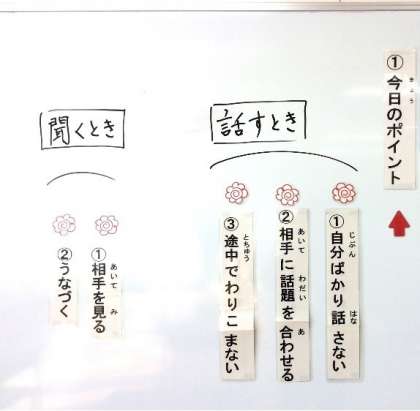 ①今日のポイント
話すとき
①自分ばかり話さない
②相手に話題を合わせる
③途中でわりこまない
聞くとき
①相手を見る
②うなづく